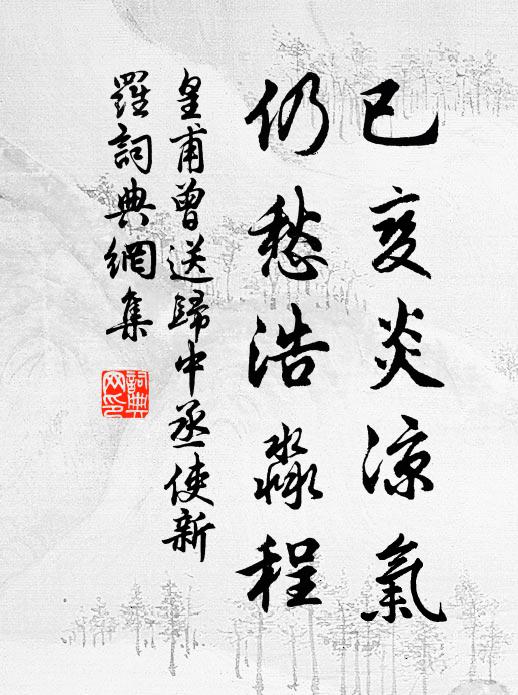 已变炎涼氣
仍愁浩淼程
皇甫曾送歸中丞使新
羅詞典網集
詞典
网印